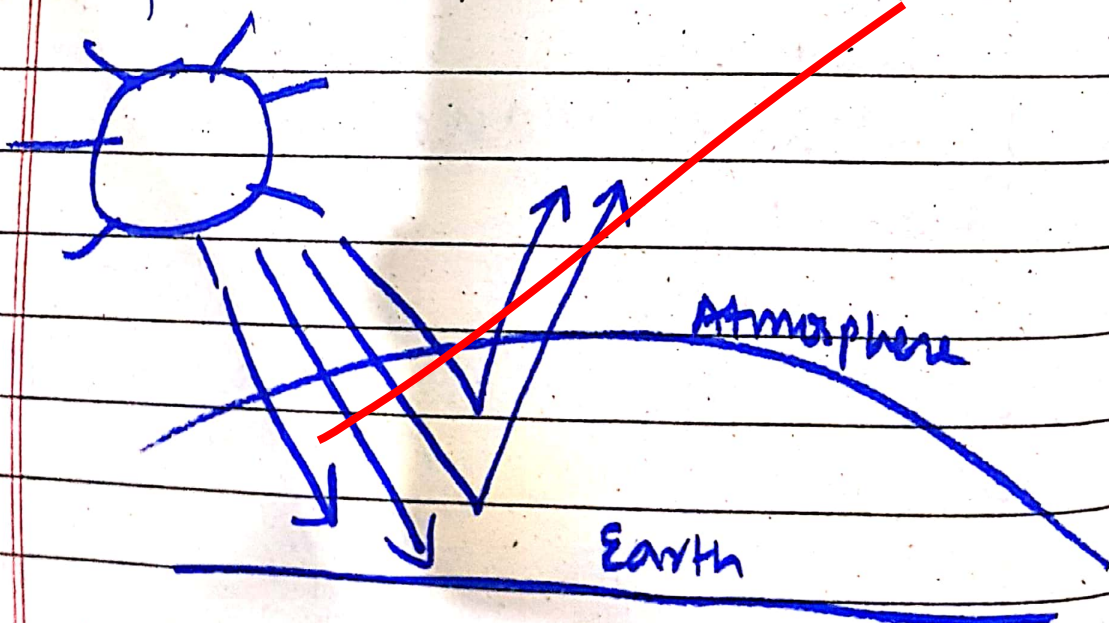 Atmosphere
Earth